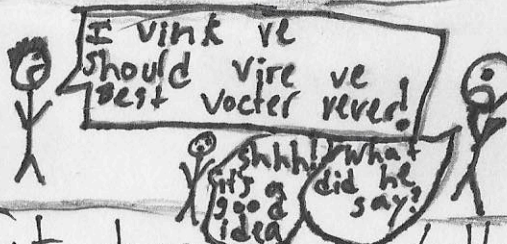 I vink ve
should vire ve
best vocter rever!
shhh!
it's a
good
idea
what
did he
say?